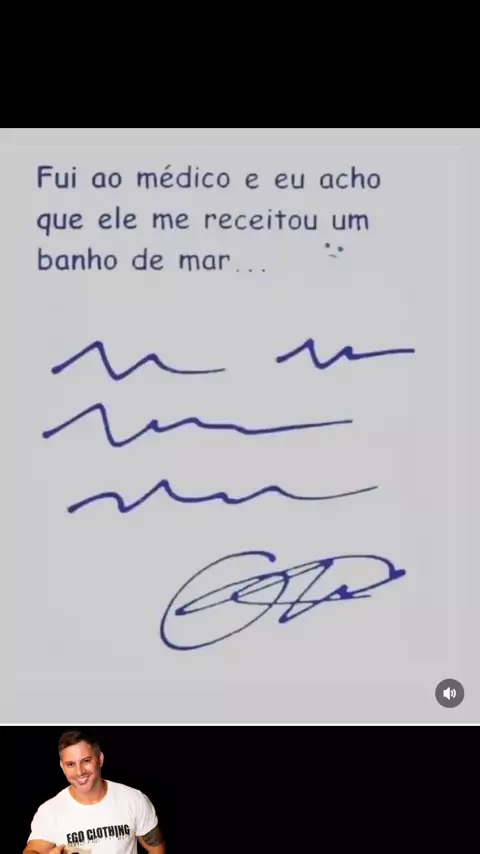 Fui ao médico e eu acho
que ele me receitou um
banho de mar...
EGO CLOTHING